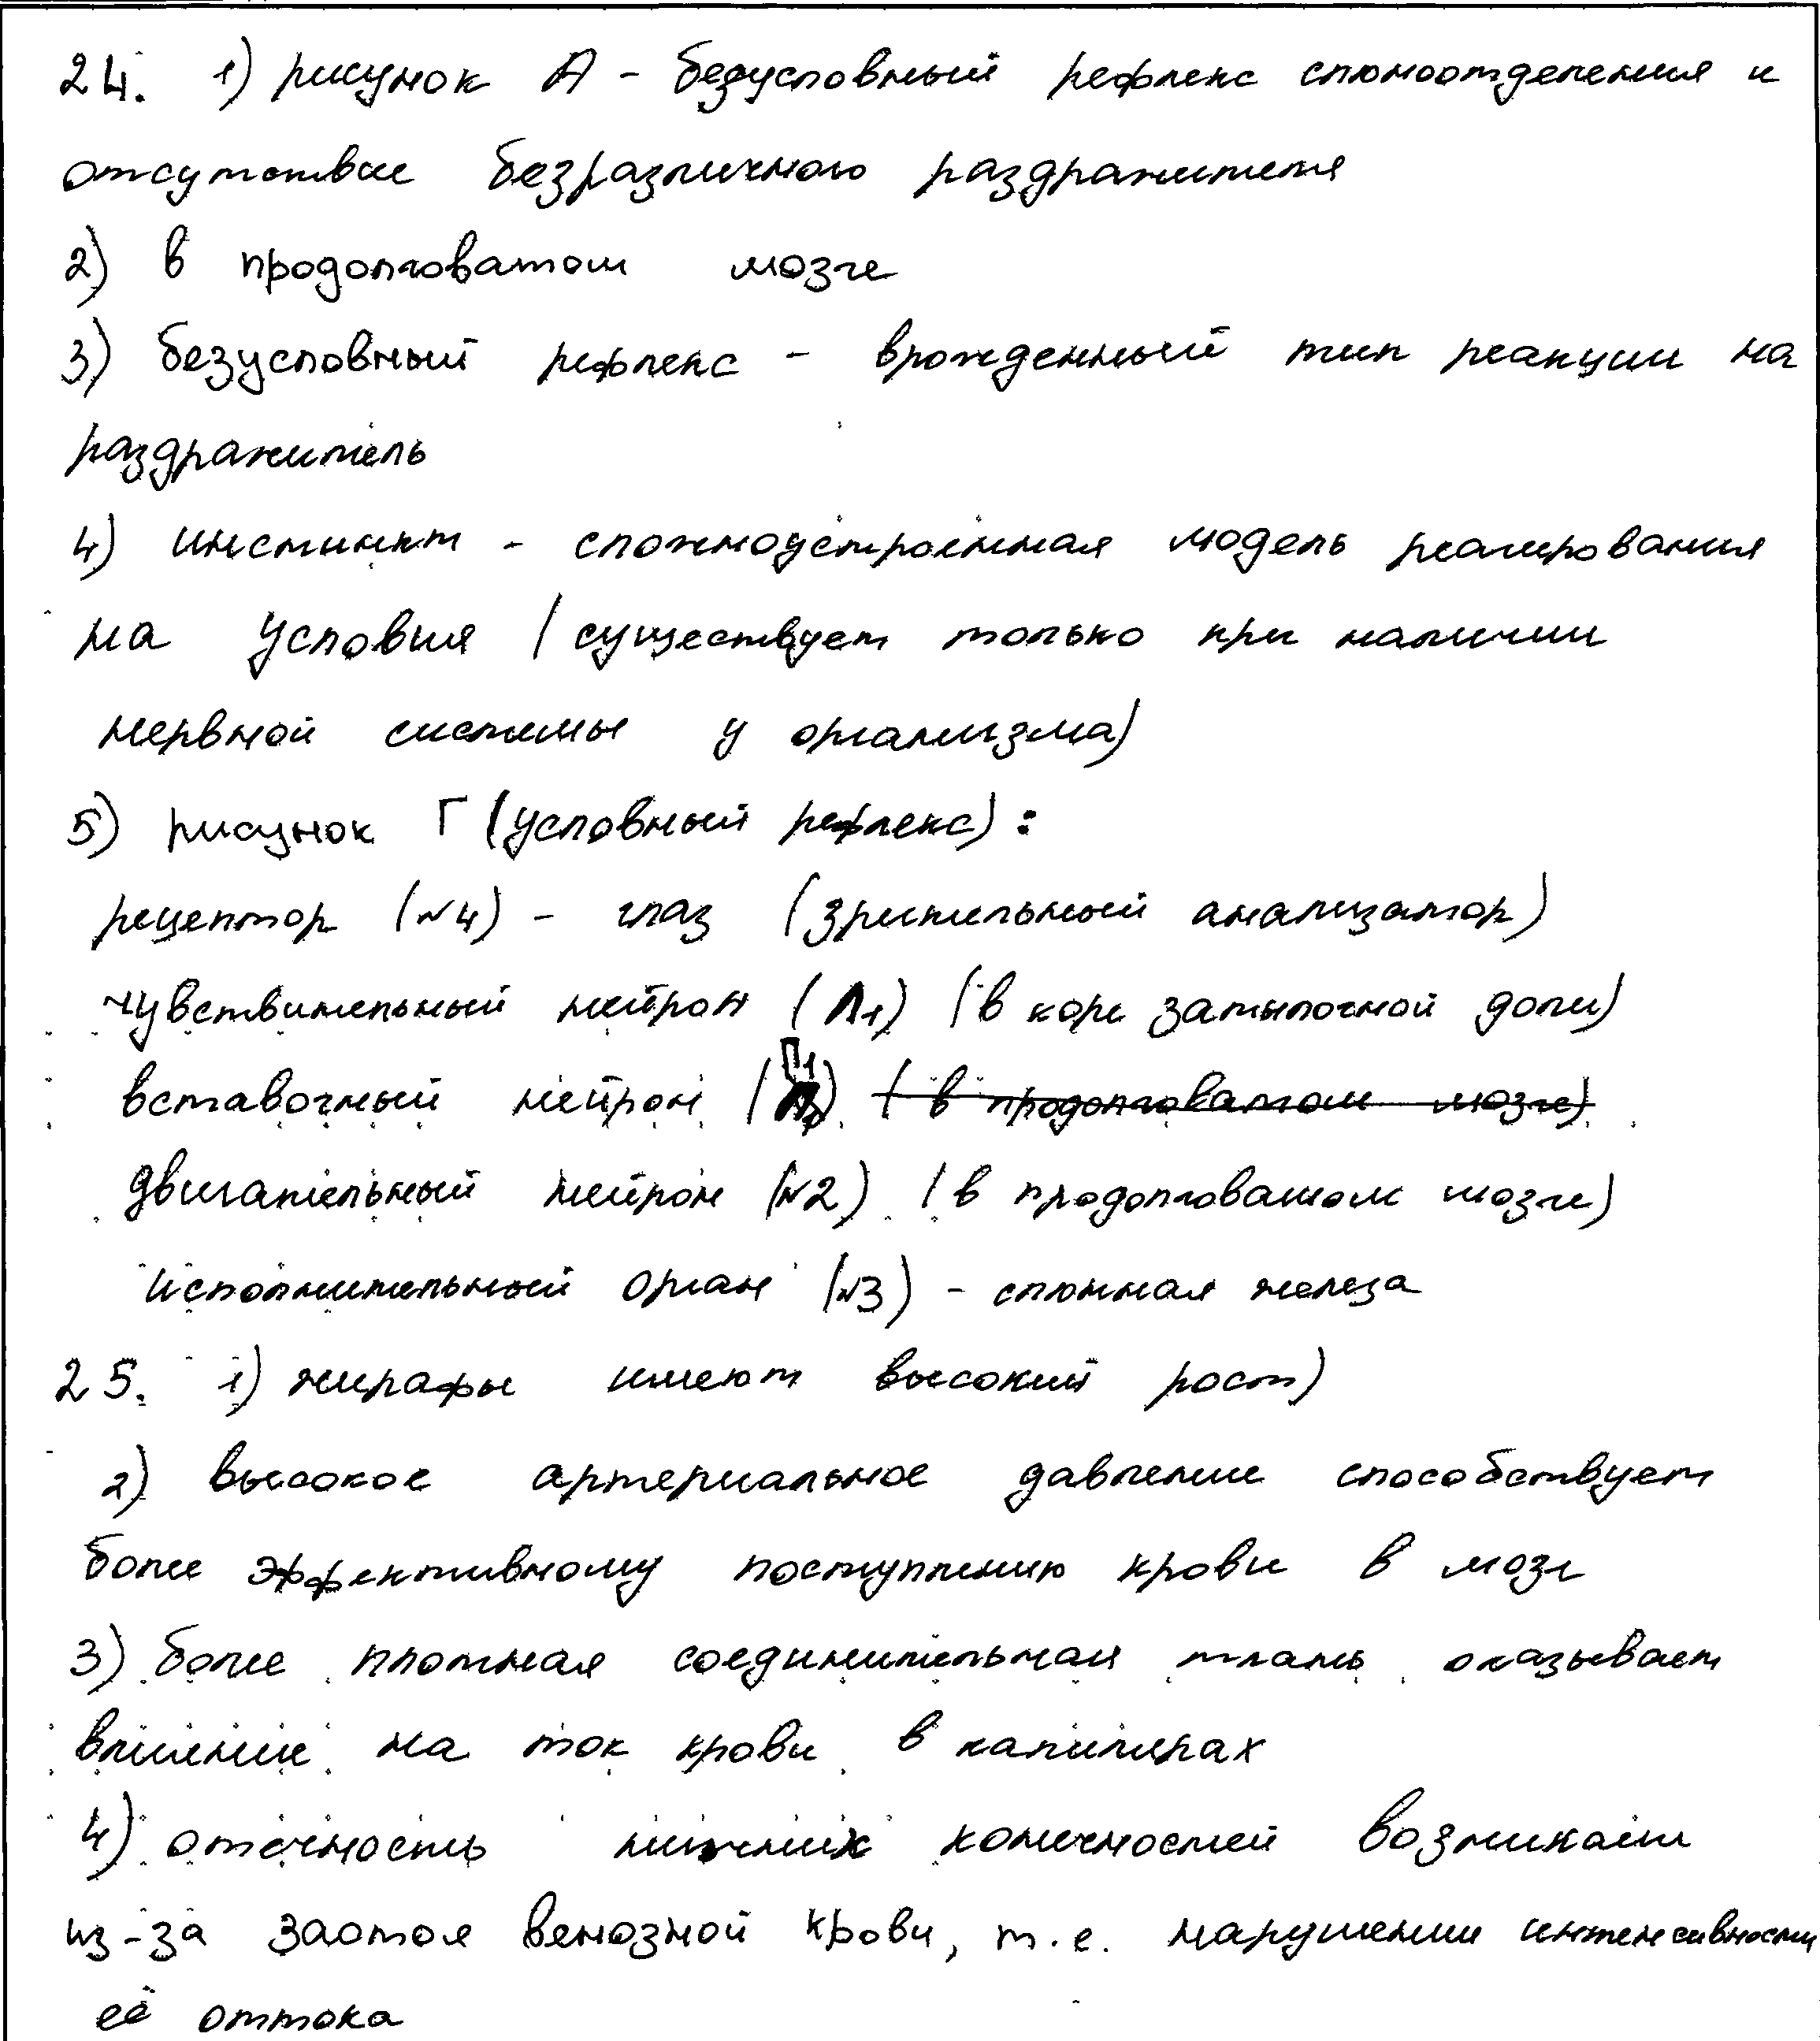 24. 1) рисунок А - безусловный рефлекс слюноотделения и
отсутствие безразличного раздражителя
2) в продолговатом мозге
3) безусловный рефлекс - врожденный тип реакции на
раздражитель
4) инстинкт - сложноустроенная модель реагирования
на условия (существует только при наличии
нервной системы у организма)
5) рисунок Г (условный рефлекс):
рецептор (№4) - глаз (зрительный анализатор)
чувствительный нейрон (Л1) (в коре затылочной доли)
вставочный нейрон (П1) (в продолговатом мозге)
двигательный нейрон (№2) (в продолговатом мозге)
исполнительный орган (№3) - слюнная железа
25. 1) жирафы имеют высокий рост)
2) высокое артериальное давление способствует
более эффективному поступлению крови в мозг
3) более плотная соединительная ткань оказывает
влияние на ток крови в капилярах
4) отечность нижних конечностей возникает
из-за застоя венозной крови, т.е. нарушении интенсивности
её оттока